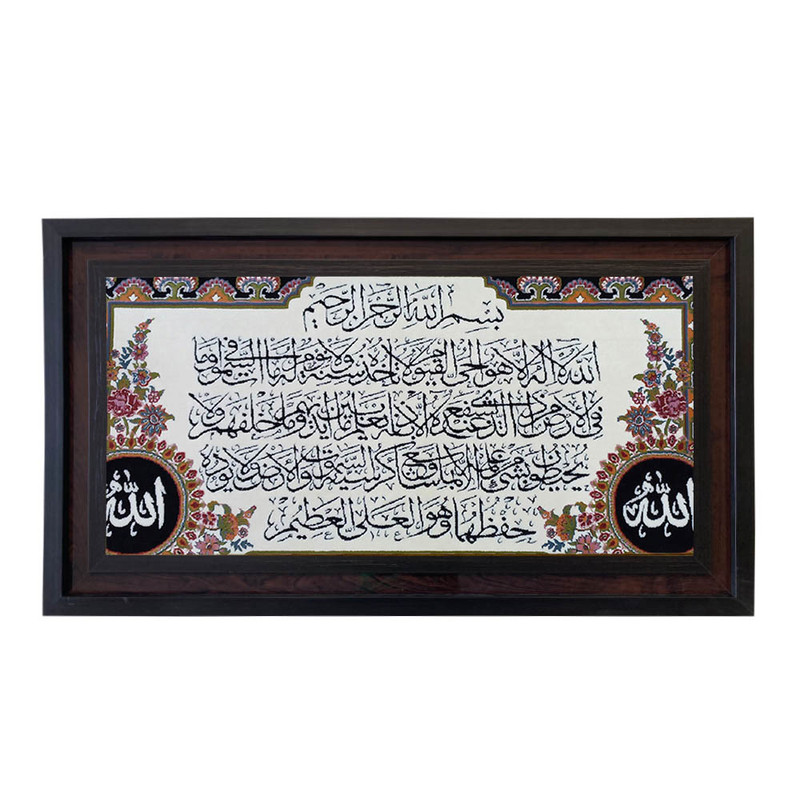 بِسْمِ اللهِ الرَّحْمٰنِ الرَّحِيْمِ
اَللهُ لَا اِلٰهَ اِلَّا هُوَ الْحَيُّ الْقَيُّوْمُ لَا تَاْخُذُهٗ سِنَةٌ وَّلَا نَوْمٌ لَهٗ مَا فِي السَّمٰوٰتِ وَمَا
فِي الْاَرْضِ مَنْ ذَا الَّذِيْ يَشْفَعُ عِنْدَهٗ اِلَّا بِاِذْنِهٖ يَعْلَمُ مَا بَيْنَ اَيْدِيْهِمْ وَمَا خَلْفَهُمْ وَلَا
يُحِيْطُوْنَ بِشَيْءٍ مِّنْ عِلْمِهٖ اِلَّا بِمَا شَاءَ وَسِعَ كُرْسِيُّهُ السَّمٰوٰتِ وَالْاَرْضَ وَلَا يَئُوْدُهٗ
حِفْظُهُمَا وَهُوَ الْعَلِيُّ الْعَظِيْمُ
الله
الله